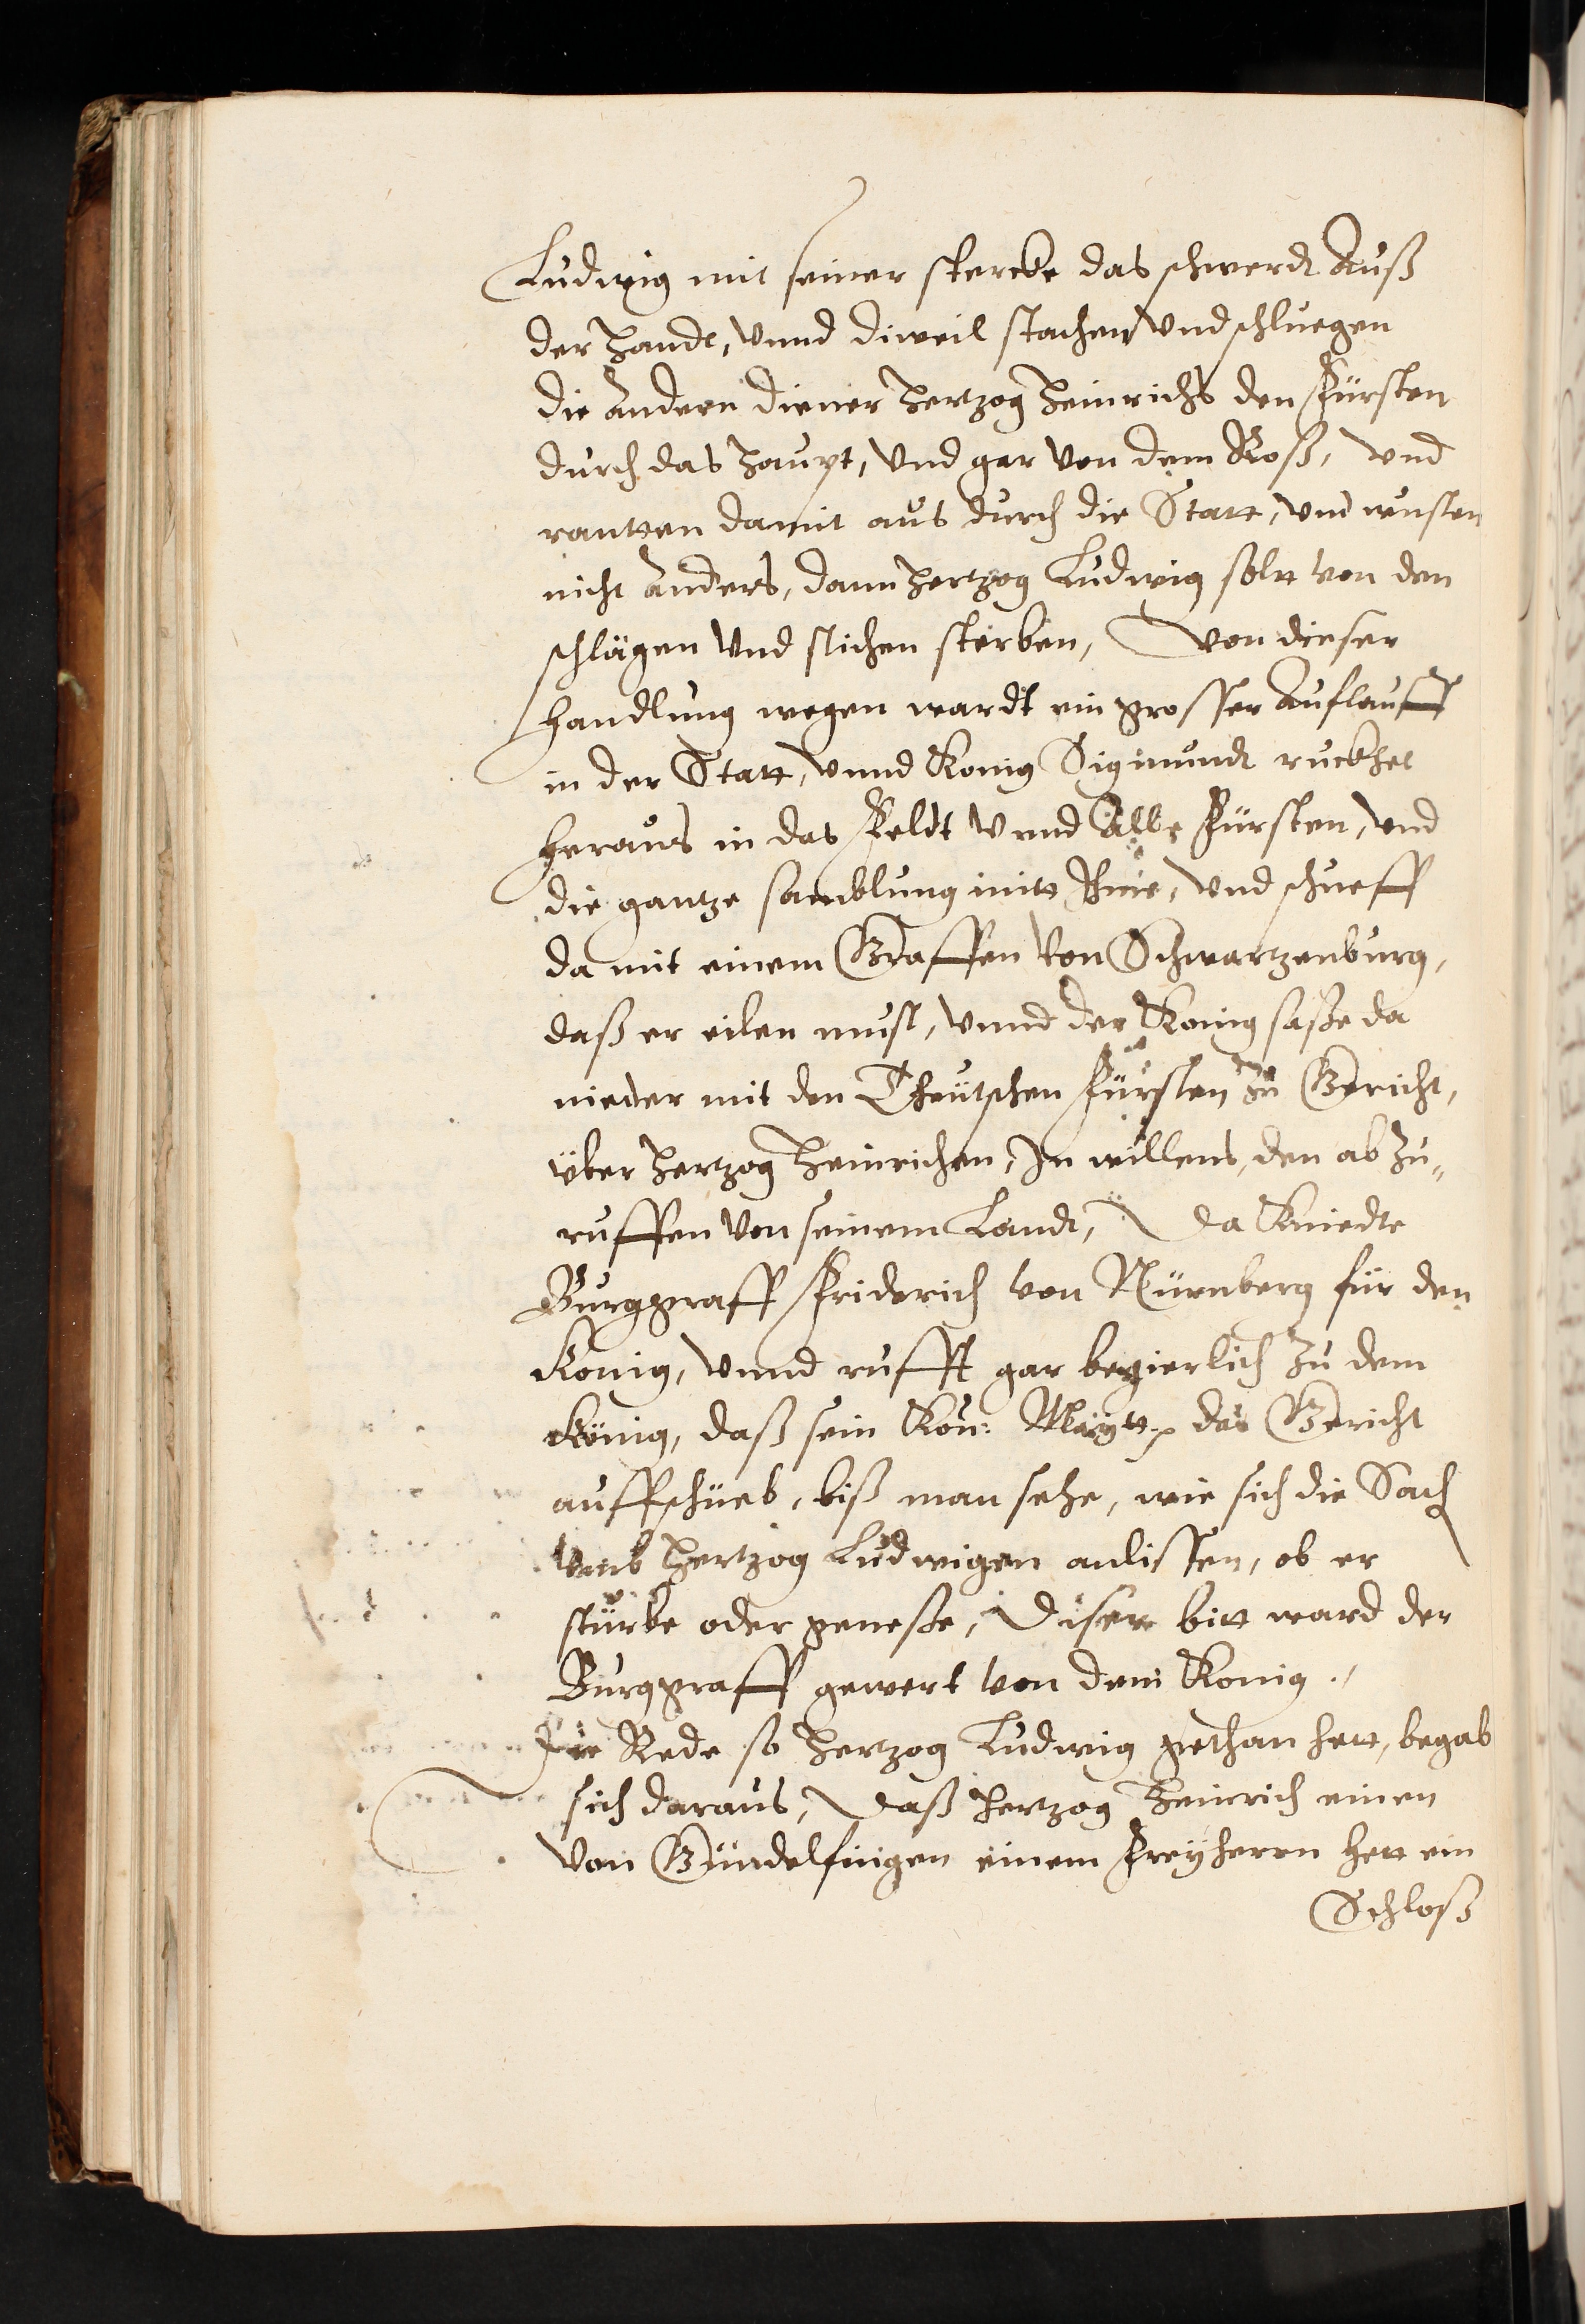 Ludwig mit seiner stercke das schwerdt Auß
der Handt, vnnd dieweil stachen vnd schluegen
die Andern diener Hertzog Heinrichs den Fürsten
durch das Haupt, vnd gar von dem Roß, vnd
rantten damit aus durch die Statt, vnd wusten
nicht Anders, dann Hertzog Ludwig solt von den
schlägen vnd stichen sterben, Von dieser
handlung wegen wardt ein grosser Auflauff
in der Statt, vnnd König Sigmundt ruckhet
heraus in das Feldt vnnd Alle Fürsten, vnd
die gantze samblung mitt Ime, vnd schueff
da mit einem Graffen von Schwartzenburg,
daß er eilen must, vnnd der König sasse da
nieder mit den Theutschen Fürsten zu Gericht,
über Hertzog Heinrichen, In willens, den ab zu„
ruffen von seinem Landt, Da Kniedte
Burggraff Friderich von Nürnberg für den
König, vnnd rufft gar begierlich zu dem
König, daß sein Kön: Maytt. das Gericht
auffschüeb, biß man sehe, wie sich die Sach
vmb Hertzog Ludwigen anliessen, ob er
stürbe oder genesse, Diser bitt ward der
Burggraff gewert von dem König.
Die Rede so Hertzog Ludwig gethan hett, begab
sich daraus, Daß Hertzog Heinrich einen
von Gündelfingen einem Freyherrn hett ein
Schloß